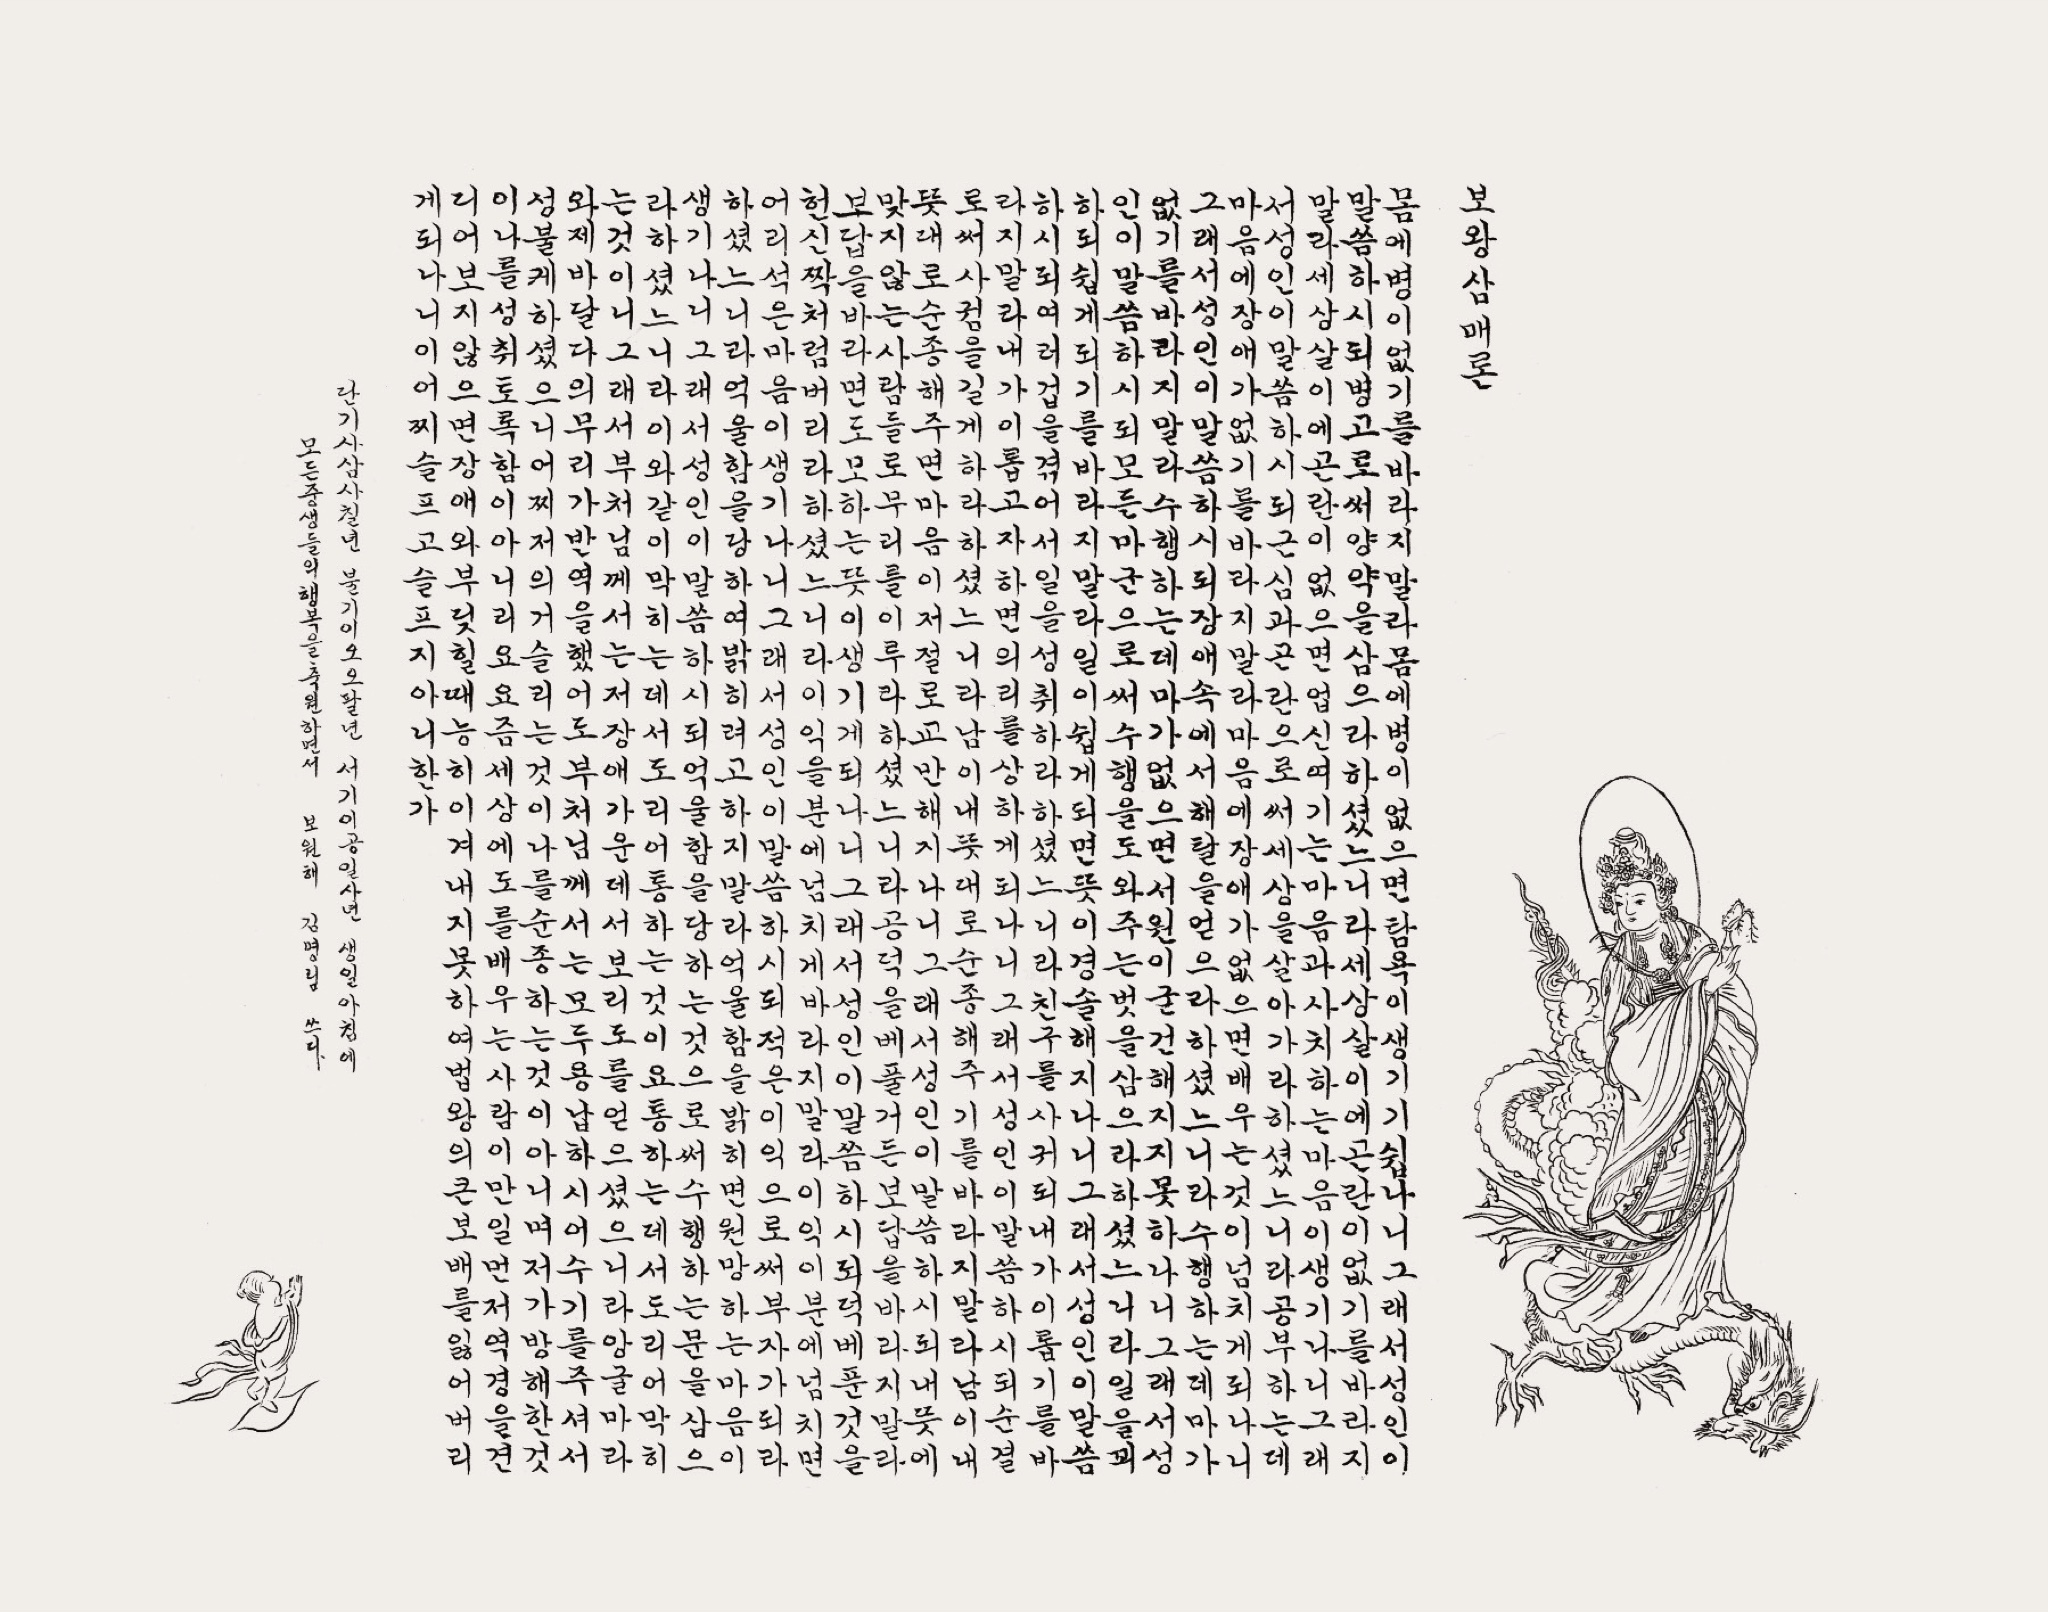 보왕삼매론
몸에병이없기를바라지말라몸에병이없으면탐욕이생기기쉽나니그래서성인이
말씀하시되병고로써양약을삼으라하셨느니라세상살이에곤란이없기를바라지
말라세상살이에곤란이없으면업신여기는마음과사치하는마음이생기나니그래
서성인이말씀하시되근심과곤란으로써세상을살아가라하셨느니라공부하는데
마음에장애가없기를바라지말라마음에장애가없으면배우는것이넘치게되나니
그래서성인이말씀하시되장애속에서해탈을얻으라하셨느니라수행하는데마가
없기를바라지말라수행하는데마가없으면서원이굳건해지지못하나니그래서성
인이말씀하시되모든마군으로써수행을도와주는벗을삼으라하셨느니라일을꾀
하되쉽게되기를바라지말라일이쉽게되면뜻이경솔해지나니그래서성인이말씀
하시되여러겁을겪어서일을성취하라하셨느니라친구를사귀되내가이롭기를바
라지말라내가이롭고자하면의리를상하게되나니그래서성인이말씀하시되순결
로써사귐을길게하라하셨느니라남이내뜻대로순종해주기를바라지말라남이내
뜻대로순종해주면마음이저절로교만해지나니그래서성인이말씀하시되내뜻에
맞지않는사람들로무리를이루라하셨느니라공덕을베풀거든보답을바라지말라
보답을바라면도모하는뜻이생기게되나니그래서성인이말씀하시되덕베푼것을
헌신짝처럼버리라하셨느니라이익을분에넘치게바라지말라이익이분에넘치면
어리석은마음이생기나니그래서성인이말씀하시되적은이익으로써부자가되라
하셨느니라억울함을당하여밝히려고하지말라억울함을밝히면원망하는마음이
생기나니그래서성인이말씀하시되억울함을당하는것으로써수행하는문을삼으
라하셨느니라이와같이막히는데서도리어통하는것이요통하는데서도리어막히
는것이니그래서부처님께서는저장애가운데서보리도를얻으셨으니라앙굴마라
와제바달다의무리가반역을했어도부처님께서는모두용납하시어수기를주셔서
성불케하셨으니어찌저의거슬리는것이나를순종하는것이아니며저가방해한것
이나를성취토록함이아니리요요즘세상에도를배우는사람이만일먼저역경을견
디어보지않으면장애와부딪힐때능히이겨내지못하여법왕의큰보배를잃어버리
게되나니이어찌슬프고슬프지아니한가
단기사삼사칠년 불기이오오팔년 서기이공일사년 생일아침에
모든중생들의행복을축원하면서 보원해 김명님 쓰다.